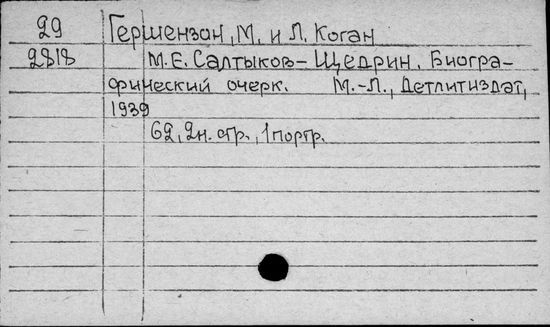 29 Гершензон, М. и Л. Коган
2818 М.Е. Салтыков-Щедрин. Биогра-
фический очерк. М.-Л., Детлитиздат,
1939
62, 2 н. стр., 1 портр.